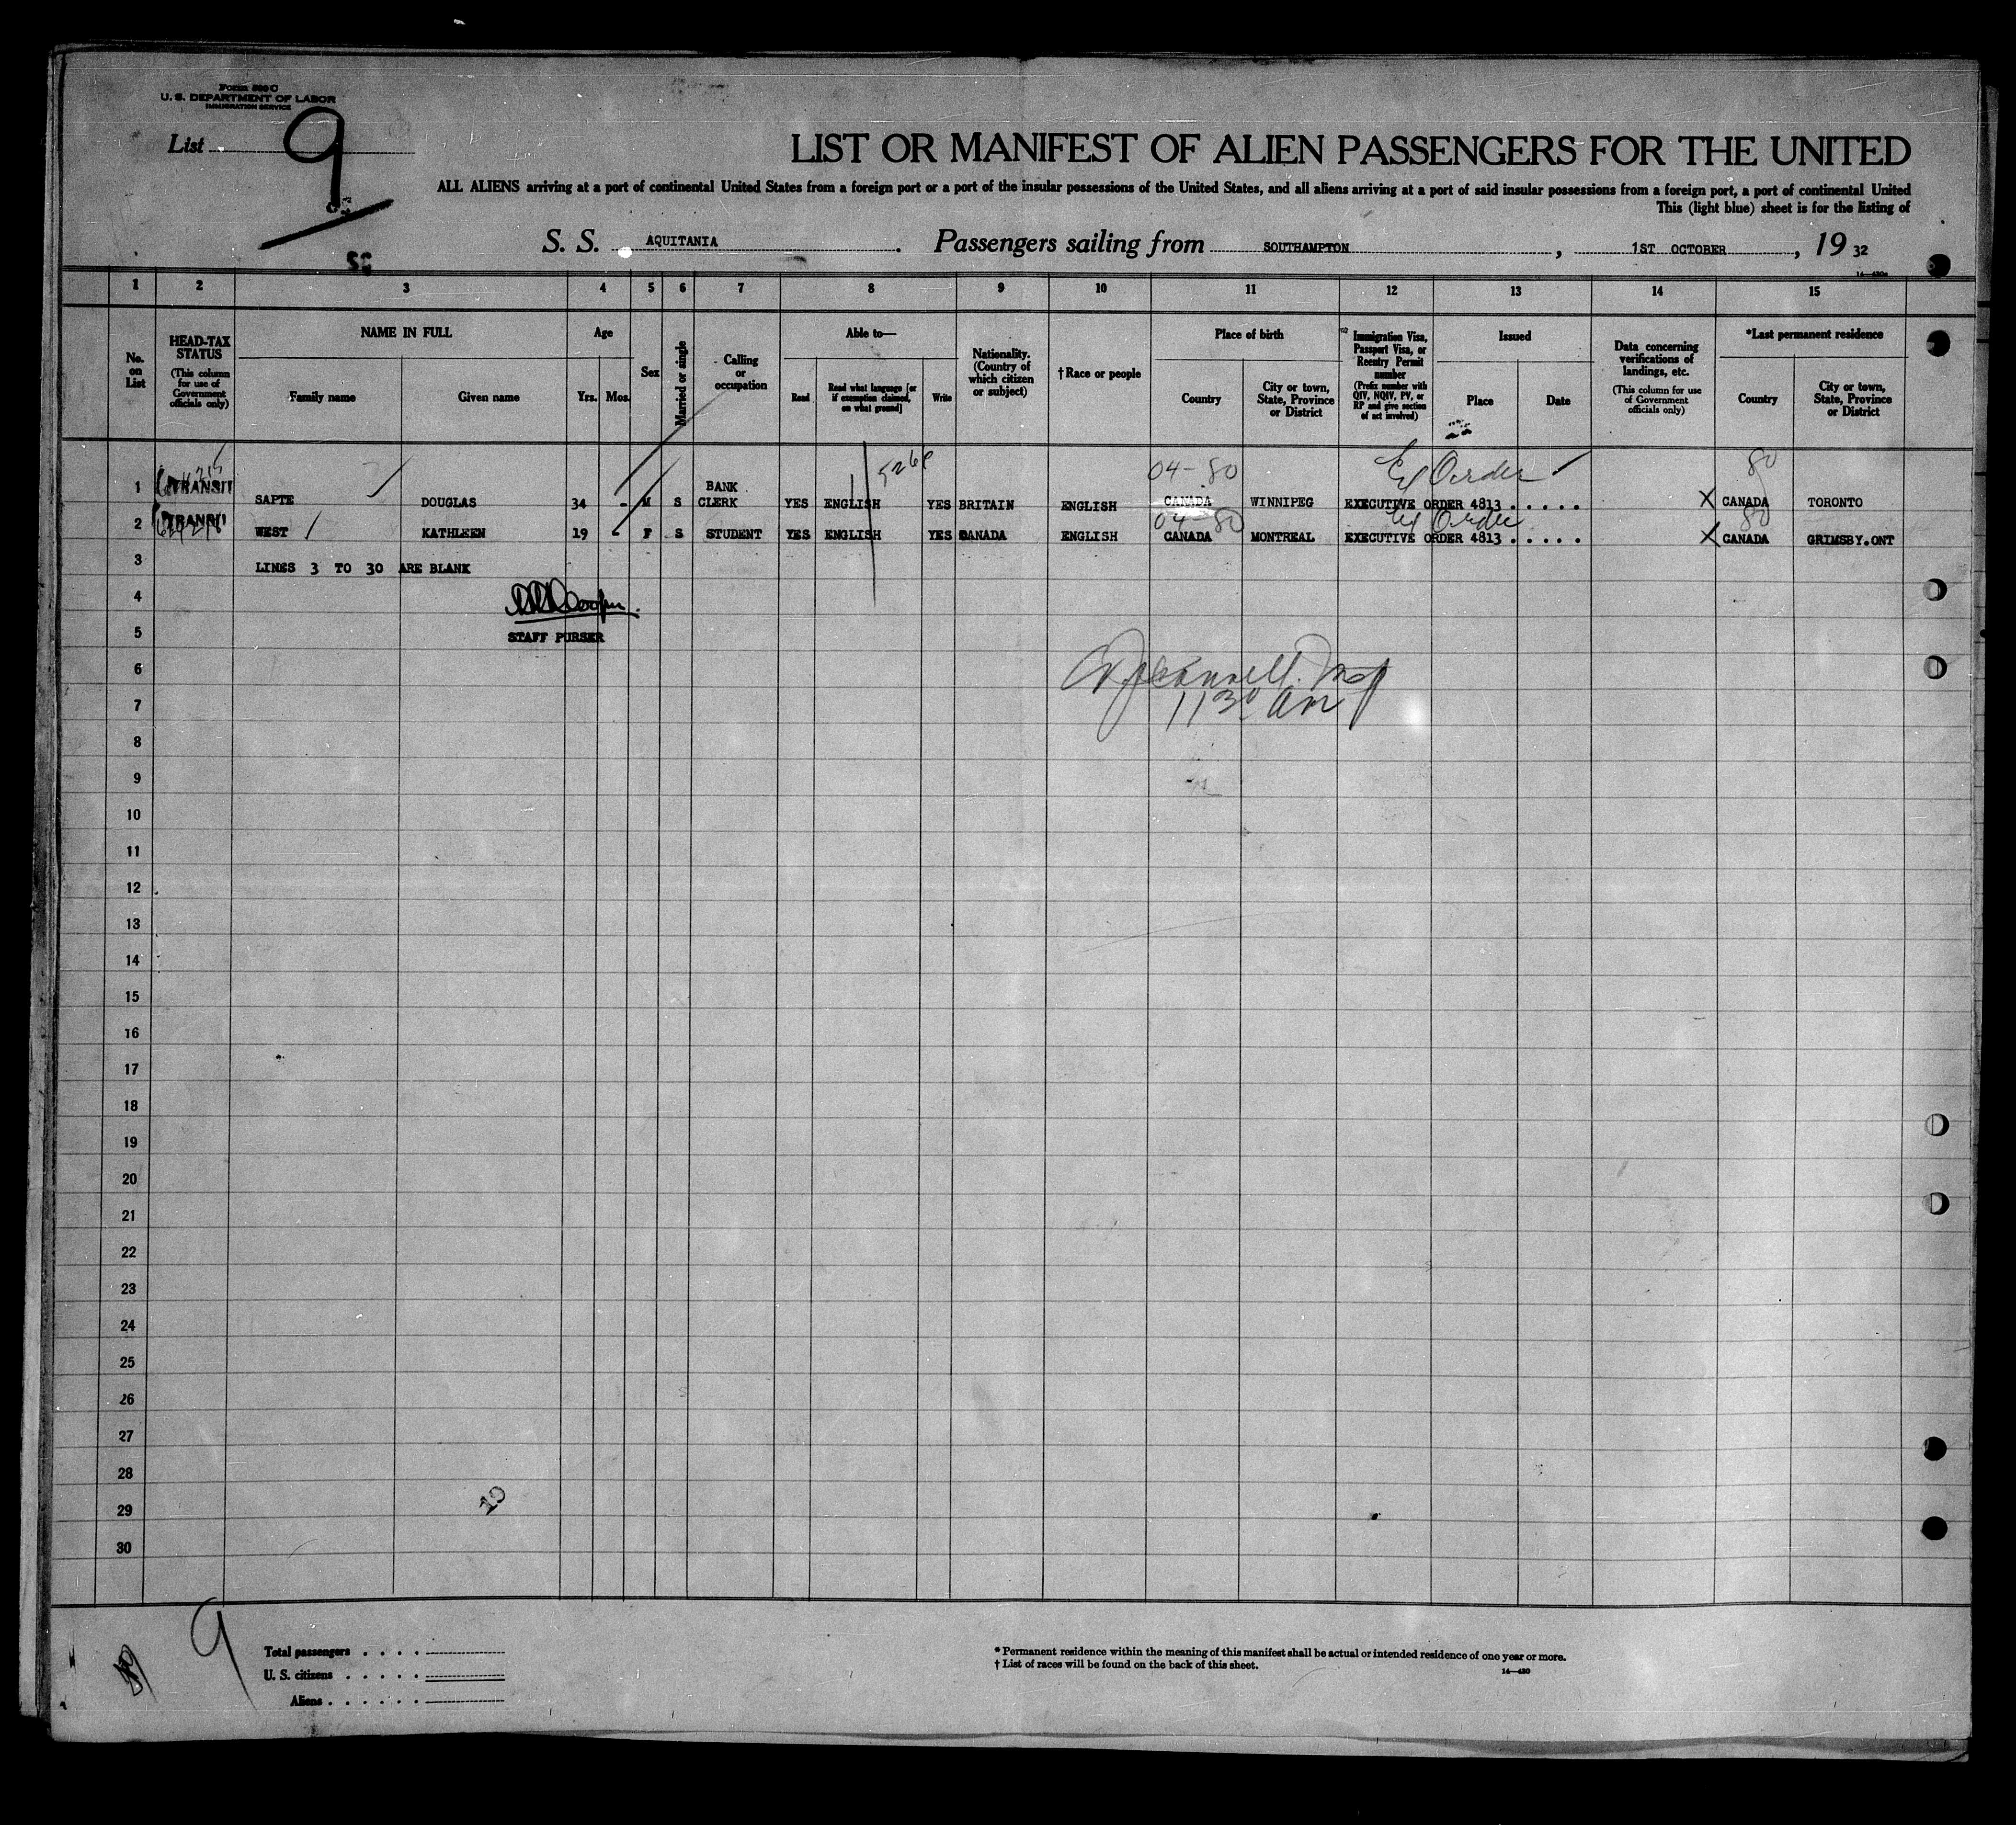 Form 500 C
U. S. DEPARTMENT OF LABOR
IMMIGRATION SERVICE
List 9
LIST OR MANIFEST OF ALIEN PASSENGERS FOR THE UNITED
ALL ALIENS arriving at a port of continental United States from a foreign port or a port of the insular possessions of the United States, and all aliens arriving at a port of said insular possessions from a foreign port, a port of continental United
This (light blue) sheet is for the listing of
S. S. AQUITANIA. Passengers sailing from SOUTHAMPTON, 1ST OCTOBER, 19 32
1 2 3 4 5 6 7 8 9 10 11 12 13 14 15
No. on List
HEAD-TAX STATUS
(This column for use of Government officials only)
NAME IN FULL
Family name
Given name
Age
Yrs. Mos.
Sex
Married or single
Calling or occupation
Able to—
Read
Read what language [or if exemption claimed, on what ground]
Write
Nationality. (Country of which citizen or subject)
† Race or people
Place of birth
Country
City or town, State, Province or District
Immigration Visa, Passport Visa, or Reentry Permit number
(Prefix number with QIV, NQIV, PV, or RP and give section of act involved)
Issued
Place
Date
Data concerning verifications of landings, etc.
(This column for use of Government officials only)
*Last permanent residence
Country
City or town, State, Province or District
04-80 Ex Order 80
1 TRANSIT SAPTE DOUGLAS 34 - M S BANK CLERK YES ENGLISH YES BRITAIN ENGLISH CANADA WINNIPEG EXECUTIVE ORDER 4813 . . . . . X CANADA TORONTO
04-80 Ex Order 80
2 TRANSIT WEST KATHLEEN 19 - F S STUDENT YES ENGLISH YES CANADA ENGLISH CANADA MONTREAL EXECUTIVE ORDER 4813 . . . . . X CANADA GRIMSBY.ONT
3 LINES 3 TO 30 ARE BLANK
4
5 STAFF PURSER
6
7 1130 am
8
9
10
11
12
13
14
15
16
17
18
19
20
21
22
23
24
25
26
27
28
29
30
9
Total passengers . . . .
U. S. citizens . . . . .
Aliens . . . . . .
* Permanent residence within the meaning of this manifest shall be actual or intended residence of one year or more.
† List of races will be found on the back of this sheet.
14—430